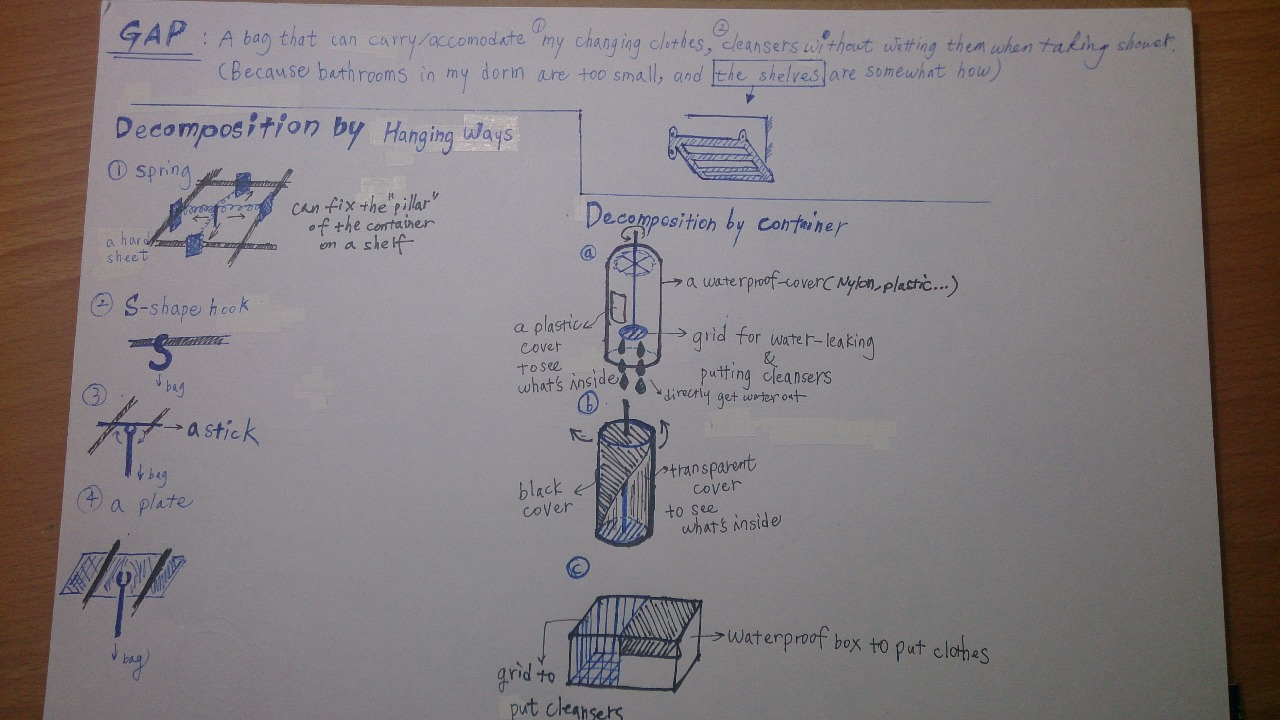 GAP : A bag that can carry/accomodate ① my changing clothes, ② cleansers without wetting them when taking shower.
(Because bathrooms in my dorm are too small, and the shelves are somewhat how)
Decomposition by Hanging Ways
① spring
can fix the "pillar"
of the container
on a shelf
a hard
sheet
② S-shape hook
bag
③
a stick
bag
④ a plate
bag
Decomposition by container
ⓐ
a waterproof-cover (Nylon, plastic...)
a plastic
cover
to see
what's inside
grid for water-leaking
&
putting cleansers
directly get water out
ⓑ
black
cover
transparent
cover
to see
what's inside
ⓒ
Waterproof box to put clothes
grid to
put cleansers